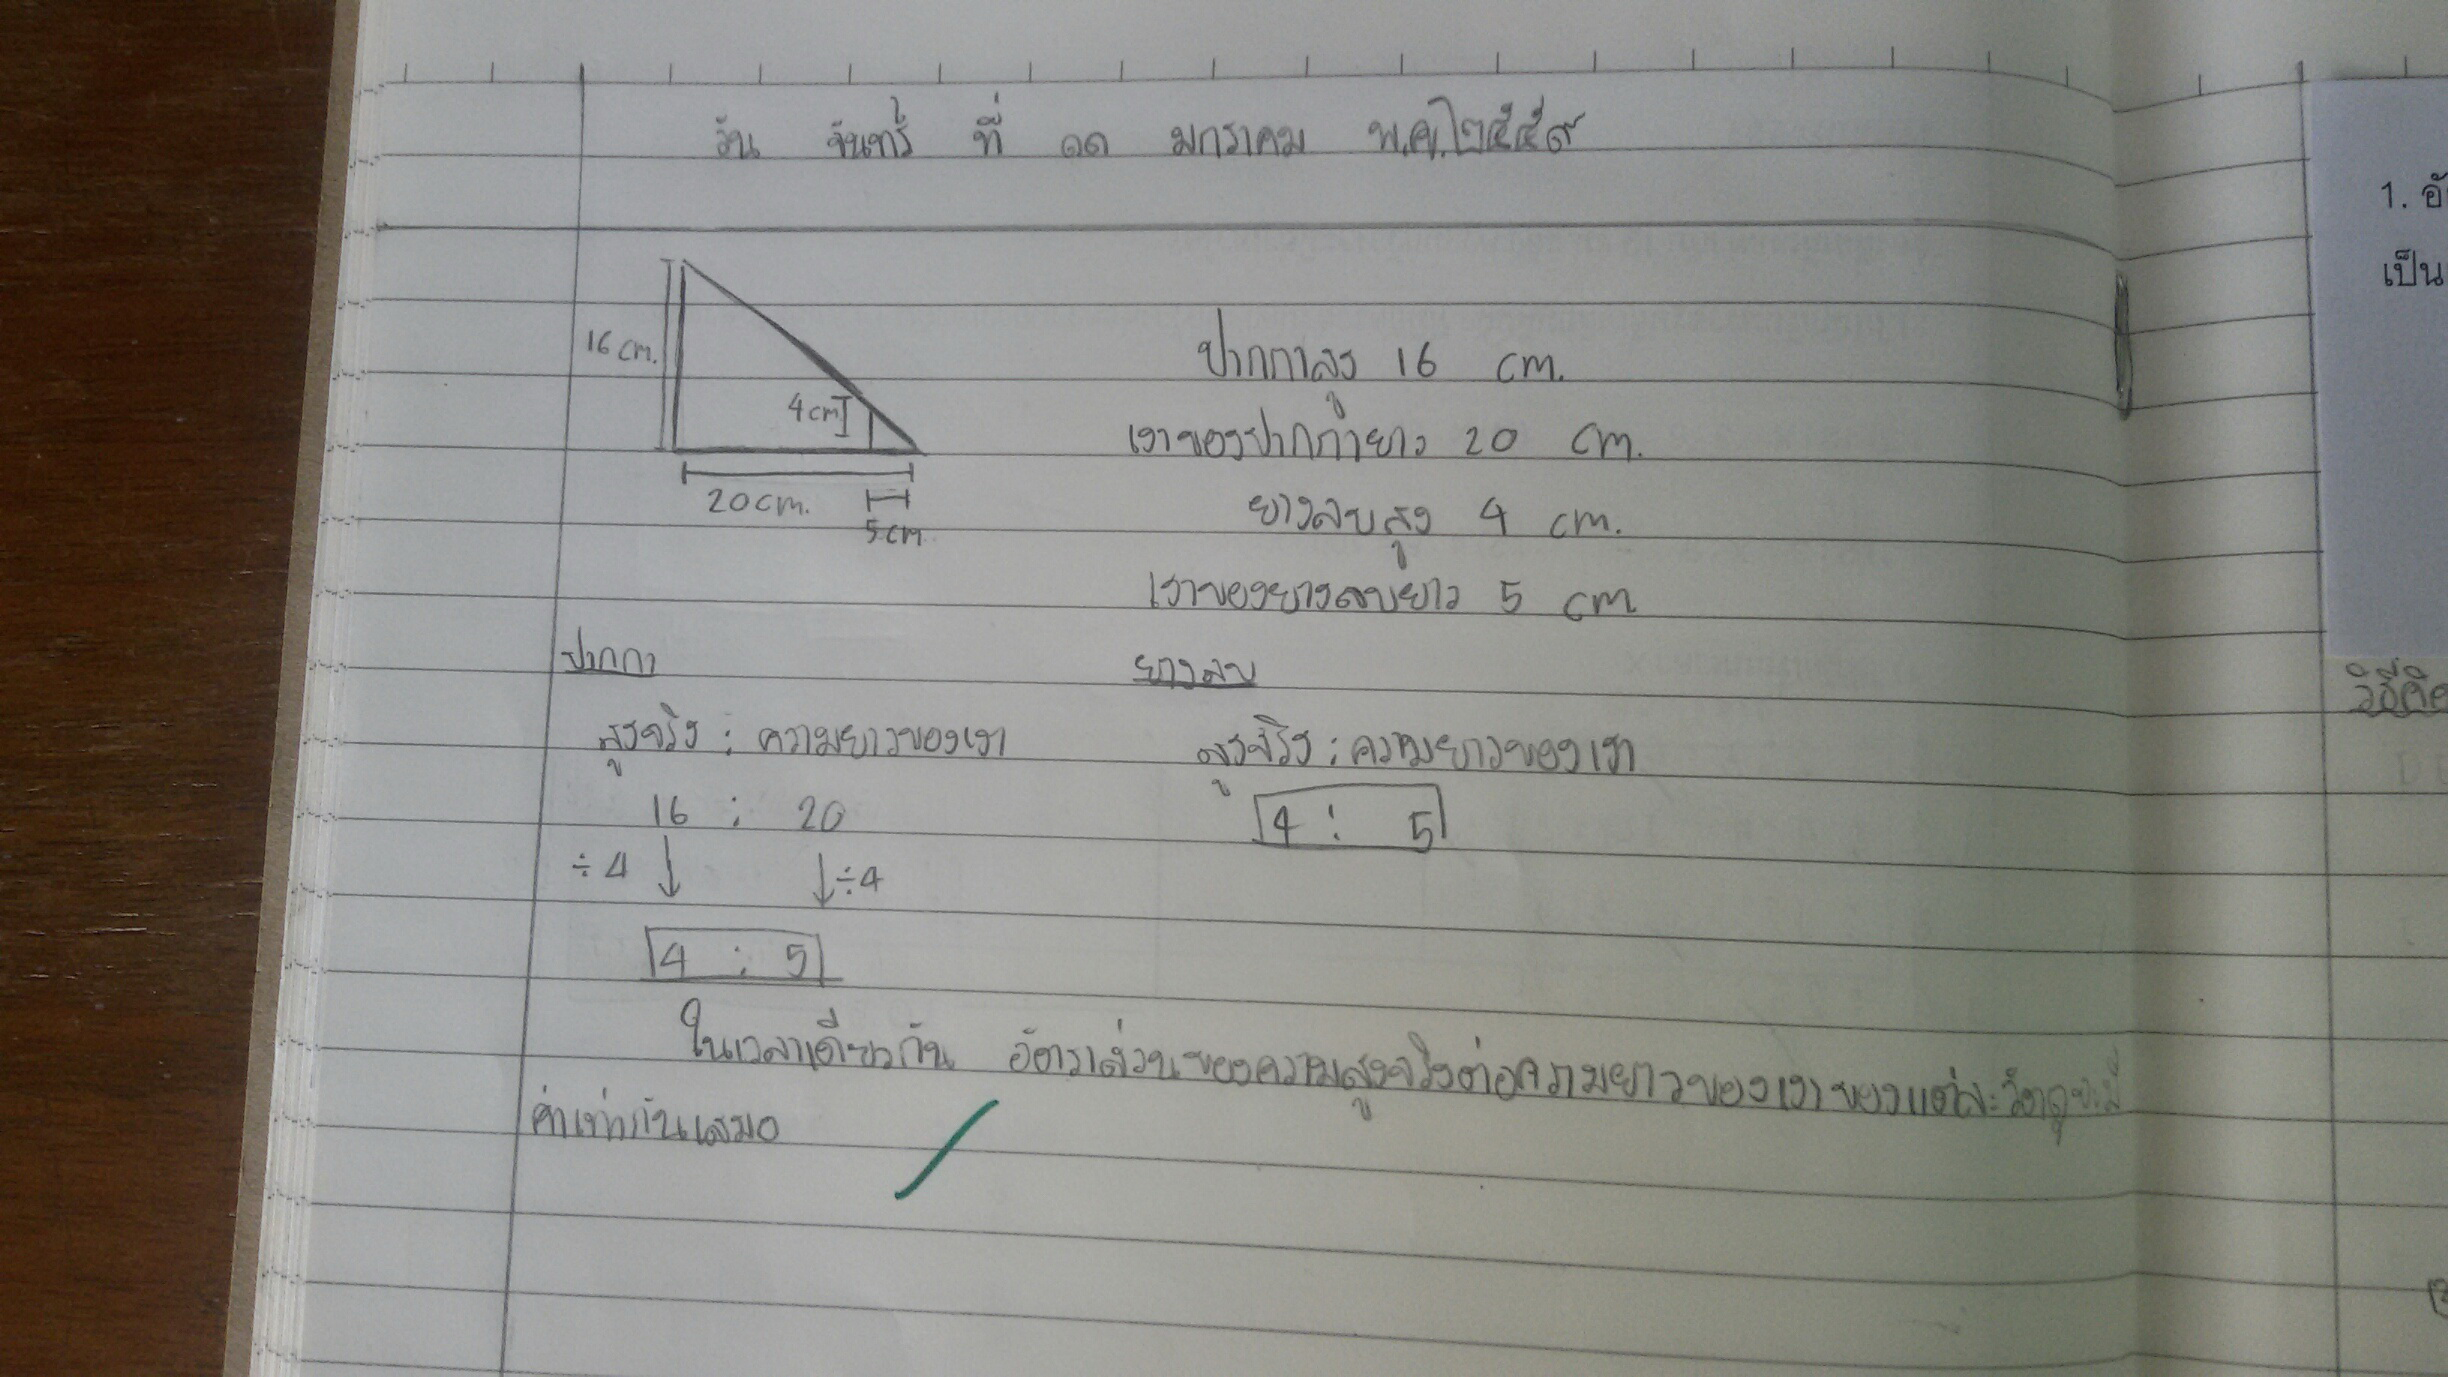 วัน จันทร์ ที่ ๑๑ มกราคม พ.ศ. ๒๕๕๙
16 cm.
4 cm
20 cm.
5 cm
ปากกาสูง 16 cm.
เงาของปากกายาว 20 cm.
ยางลบสูง 4 cm.
เงาของยางลบยาว 5 cm
ปากกา
สูงจริง : ความยาวของเงา
16 : 20
÷4 ÷4
4 : 5
ยางลบ
สูงจริง : ความยาวของเงา
4 : 5
ในเวลาเดียวกัน อัตราส่วนของความสูงจริงต่อความยาวของเงาของแต่ละวัตถุจะมี
ค่าเท่ากันเสมอ
1.
เป็น